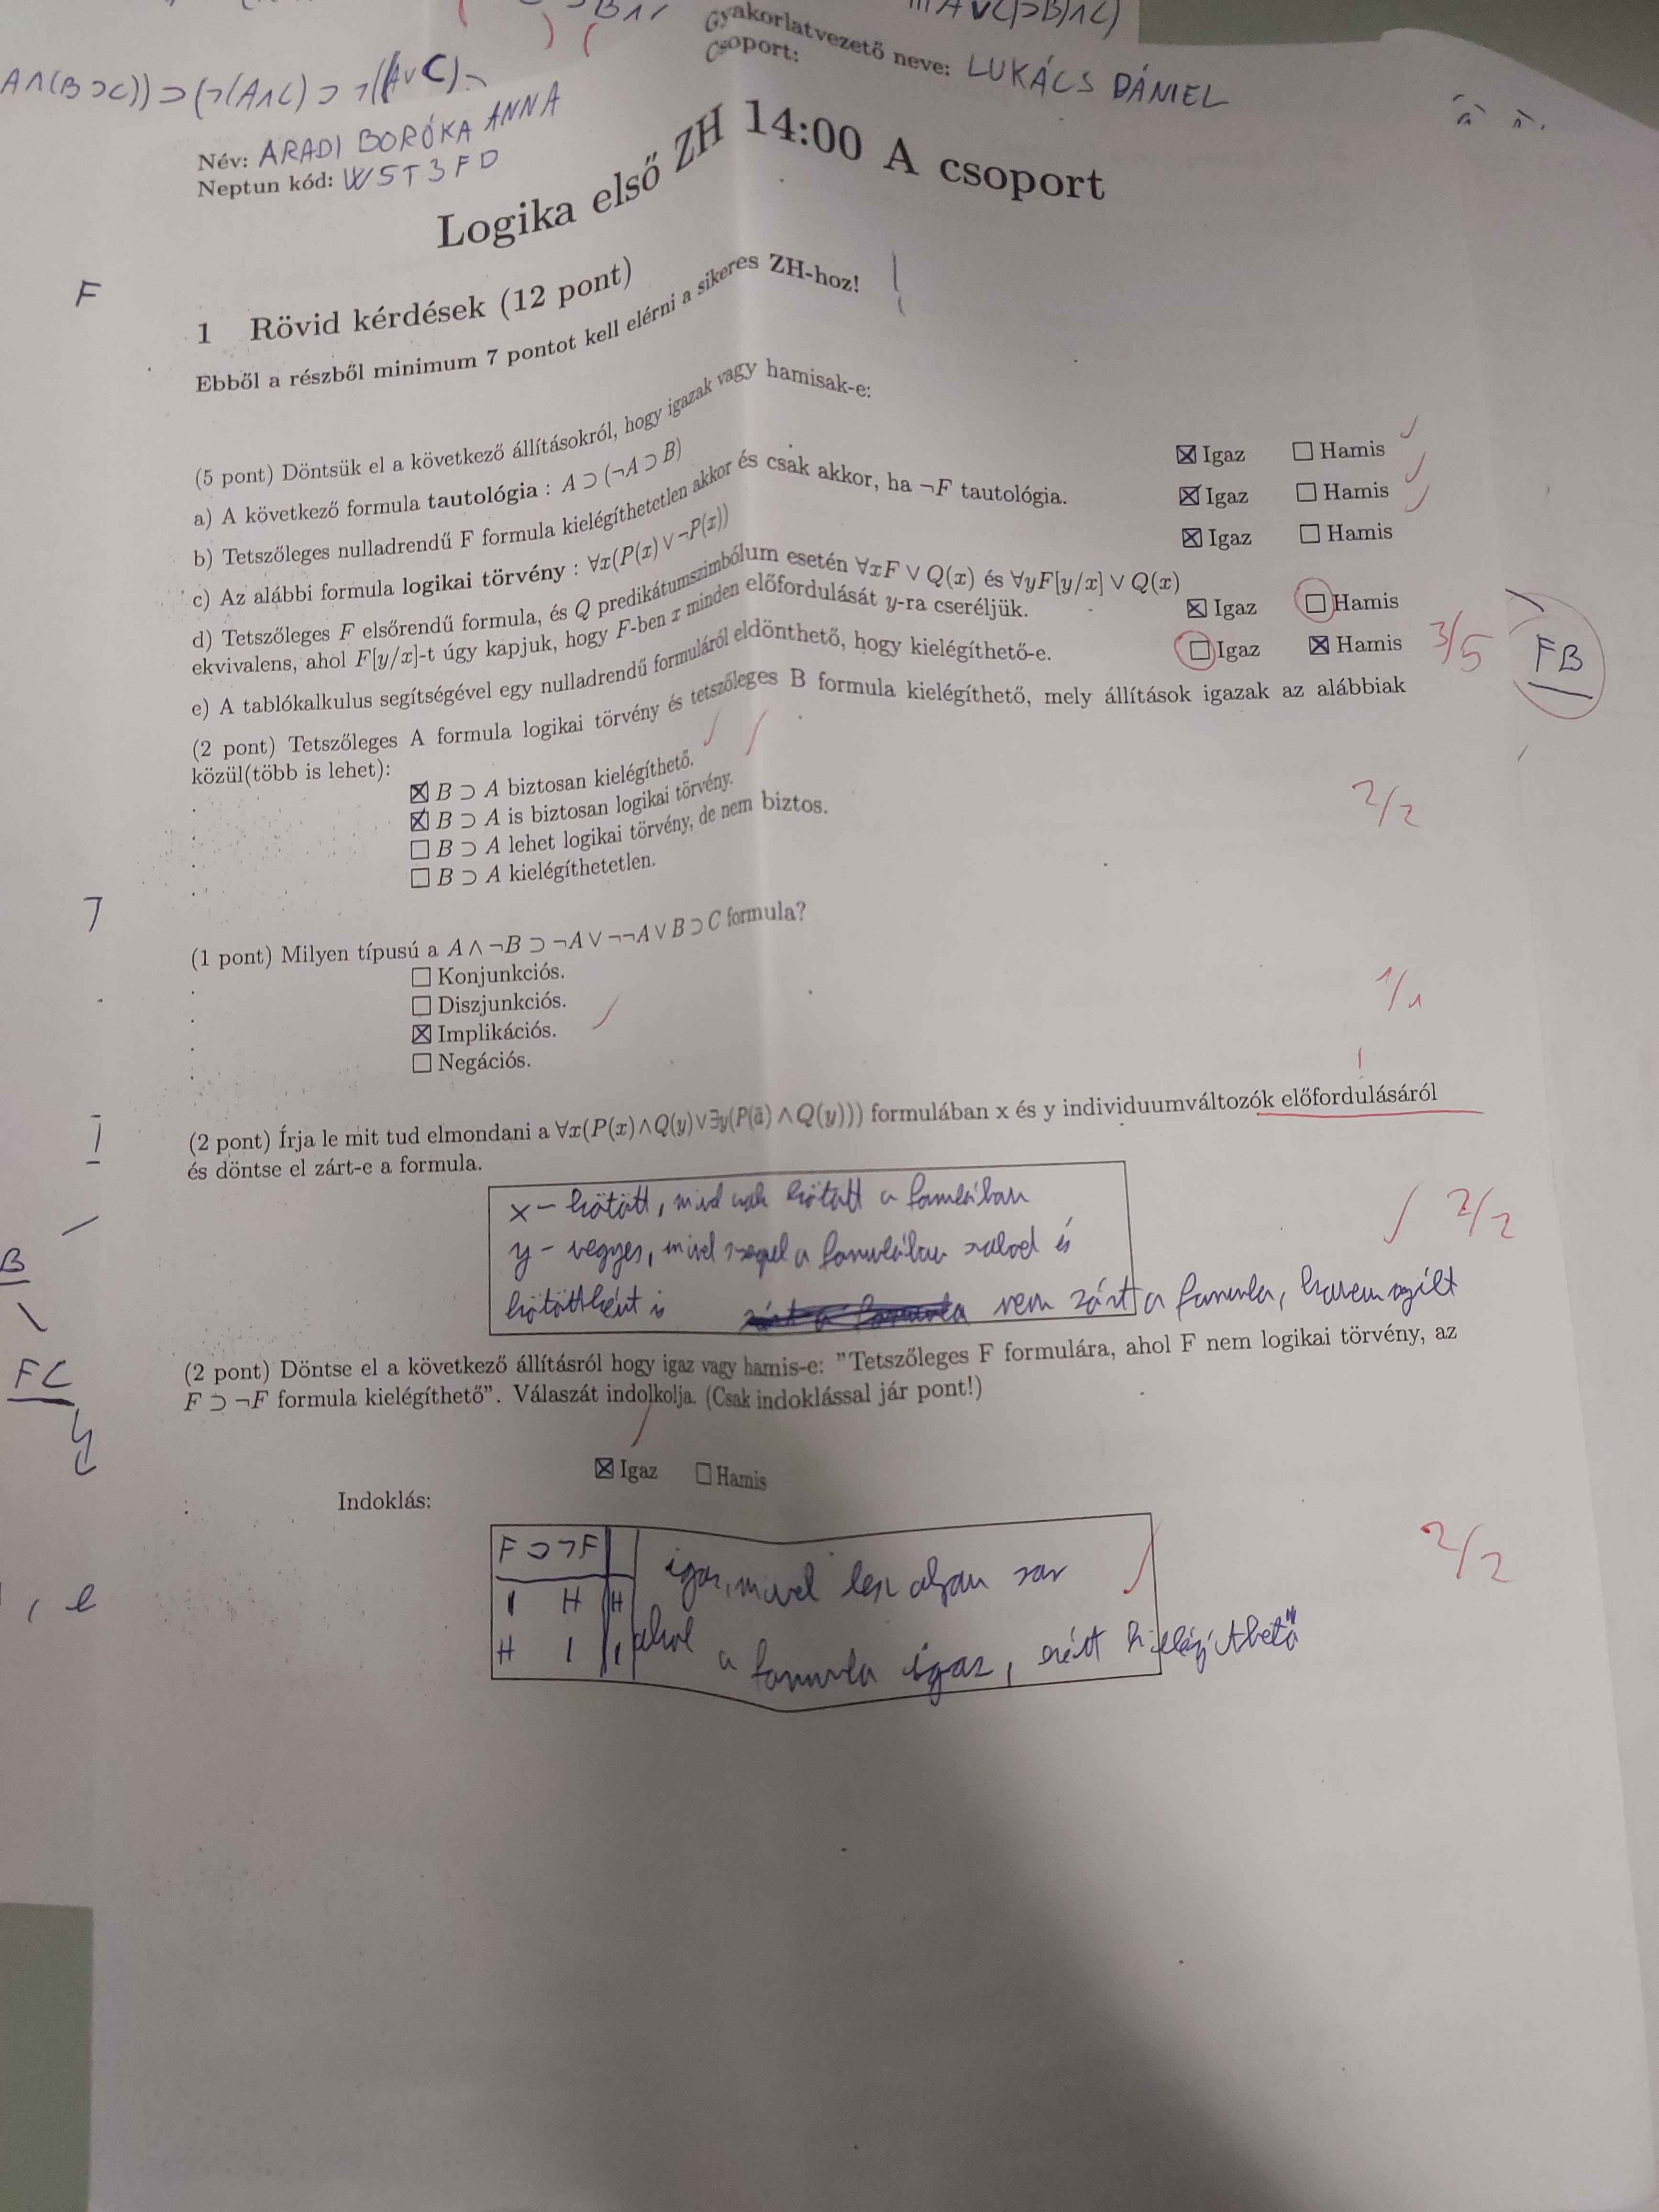 Gyakorlatvezető neve: LUKÁCS DÁNIEL
Csoport:
A∧(B⊃C))⊃(¬(A∧C)⊃¬(A∨C)
Név: ARADI BORÓKA ANNA
Neptun kód: W5T3FD
Logika első ZH 14:00 A csoport
F
1 Rövid kérdések (12 pont)
Ebből a részből minimum 7 pontot kell elérni a sikeres ZH-hoz!
(5 pont) Döntsük el a következő állításokról, hogy igazak vagy hamisak-e:
a) A következő formula tautológia : A ⊃ (¬A ⊃ B) ☒ Igaz ☐ Hamis
b) Tetszőleges nulladrendű F formula kielégíthetetlen akkor és csak akkor, ha ¬F tautológia. ☒ Igaz ☐ Hamis
c) Az alábbi formula logikai törvény : ∀x(P(x) ∨ ¬P(x)) ☒ Igaz ☐ Hamis
d) Tetszőleges F elsőrendű formula, és Q predikátumszimbólum esetén ∀xF ∨ Q(x) és ∀yF[y/x] ∨ Q(x)
ekvivalens, ahol F[y/x]-t úgy kapjuk, hogy F-ben x minden előfordulását y-ra cseréljük. ☒ Igaz ☐ Hamis
e) A tablókalkulus segítségével egy nulladrendű formuláról eldönthető, hogy kielégíthető-e. ☐ Igaz ☒ Hamis 3/5
FB
(2 pont) Tetszőleges A formula logikai törvény és tetszőleges B formula kielégíthető, mely állítások igazak az alábbiak
közül(több is lehet):
☒ B ⊃ A biztosan kielégíthető.
☒ B ⊃ A is biztosan logikai törvény.
☐ B ⊃ A lehet logikai törvény, de nem biztos.
☐ B ⊃ A kielégíthetetlen.
2/2
(1 pont) Milyen típusú a A ∧ ¬B ⊃ ¬A ∨ ¬¬A ∨ B ⊃ C formula?
☐ Konjunkciós.
☐ Diszjunkciós.
☒ Implikációs.
☐ Negációs.
1/1
(2 pont) Írja le mit tud elmondani a ∀x(P(x)∧Q(y)∨∃y(P(ā)∧Q(y))) formulában x és y individuumváltozók előfordulásáról
és döntse el zárt-e a formula.
x – kötött, mivel csak kötött a formulában
y – vegyes, mivel szerepel a formulában szabad és
kötöttként is nem zárt a formula, hanem nyílt
2/2
B
FC
(2 pont) Döntse el a következő állításról hogy igaz vagy hamis-e: "Tetszőleges F formulára, ahol F nem logikai törvény, az
F ⊃ ¬F formula kielégíthető". Válaszát indolkolja. (Csak indoklással jár pont!)
☒ Igaz ☐ Hamis
Indoklás:
F ⊃ ¬F
I H H
H I I
igaz, mivel lesz olyan sor
ahol a formula igaz, ezért kielégíthető
2/2